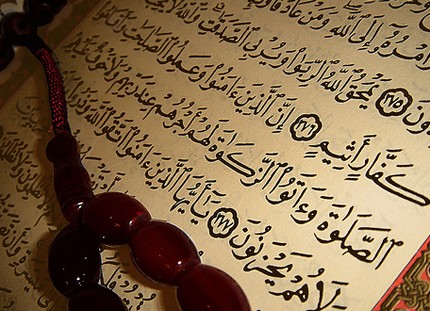 وَأَمْرُهُ إِلَى ٱللَّهِ وَمَنْ عَادَ
ونَ ٢٧٥ يَمْحَقُ ٱللَّهُ ٱلرِّبَوٰا۟ وَيُرْبِى ٱلصَّدَقَٰتِ وَٱللَّهُ لَا يُحِبُّ
كَفَّارٍ أَثِيمٍ ٢٧٦ إِنَّ ٱلَّذِينَ ءَامَنُوا۟ وَعَمِلُوا۟ ٱلصَّٰلِحَٰتِ وَأَقَامُوا۟
ٱلصَّلَوٰةَ وَءَاتَوُا۟ ٱلزَّكَوٰةَ لَهُمْ أَجْرُهُمْ عِندَ رَبِّهِمْ وَلَا خَوْفٌ عَلَيْهِمْ
لَا هُمْ يَحْزَنُونَ ٢٧٧ يَٰٓأَيُّهَا ٱلَّذِينَ ءَامَنُوا۟ ٱتَّقُوا۟ ٱللَّهَ وَذَرُوا۟